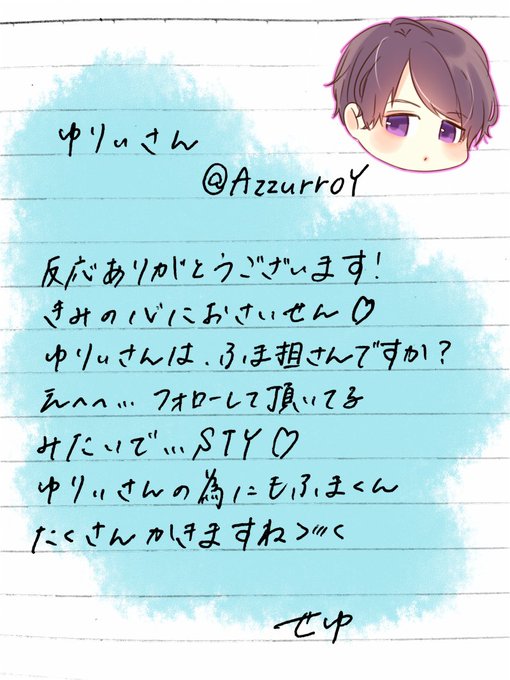 ゆりぃさん
@AzzurroY
反応ありがとうございます!
きみの心におさいせん♡
ゆりぃさんは、ふま担さんですか?
えへへ…フォローして頂いてる
みたいで…STY♡
ゆりぃさんの為にもふまくん
たくさんかきますね>⫽<
せゆ